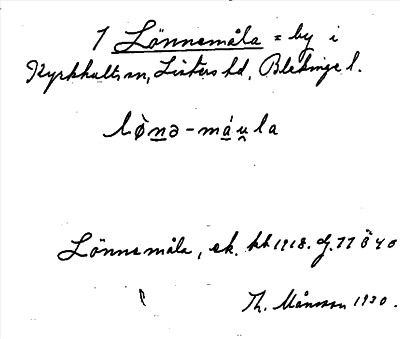 1 Lönnemåla = by i
Kyrkhults sn, Listers hd, Blekinge l.
lø̀nə-má̤u̯la
Lönnemåla, ek. kb 1918. Gf. 11 Ö 40
Th. Månsson 1930.